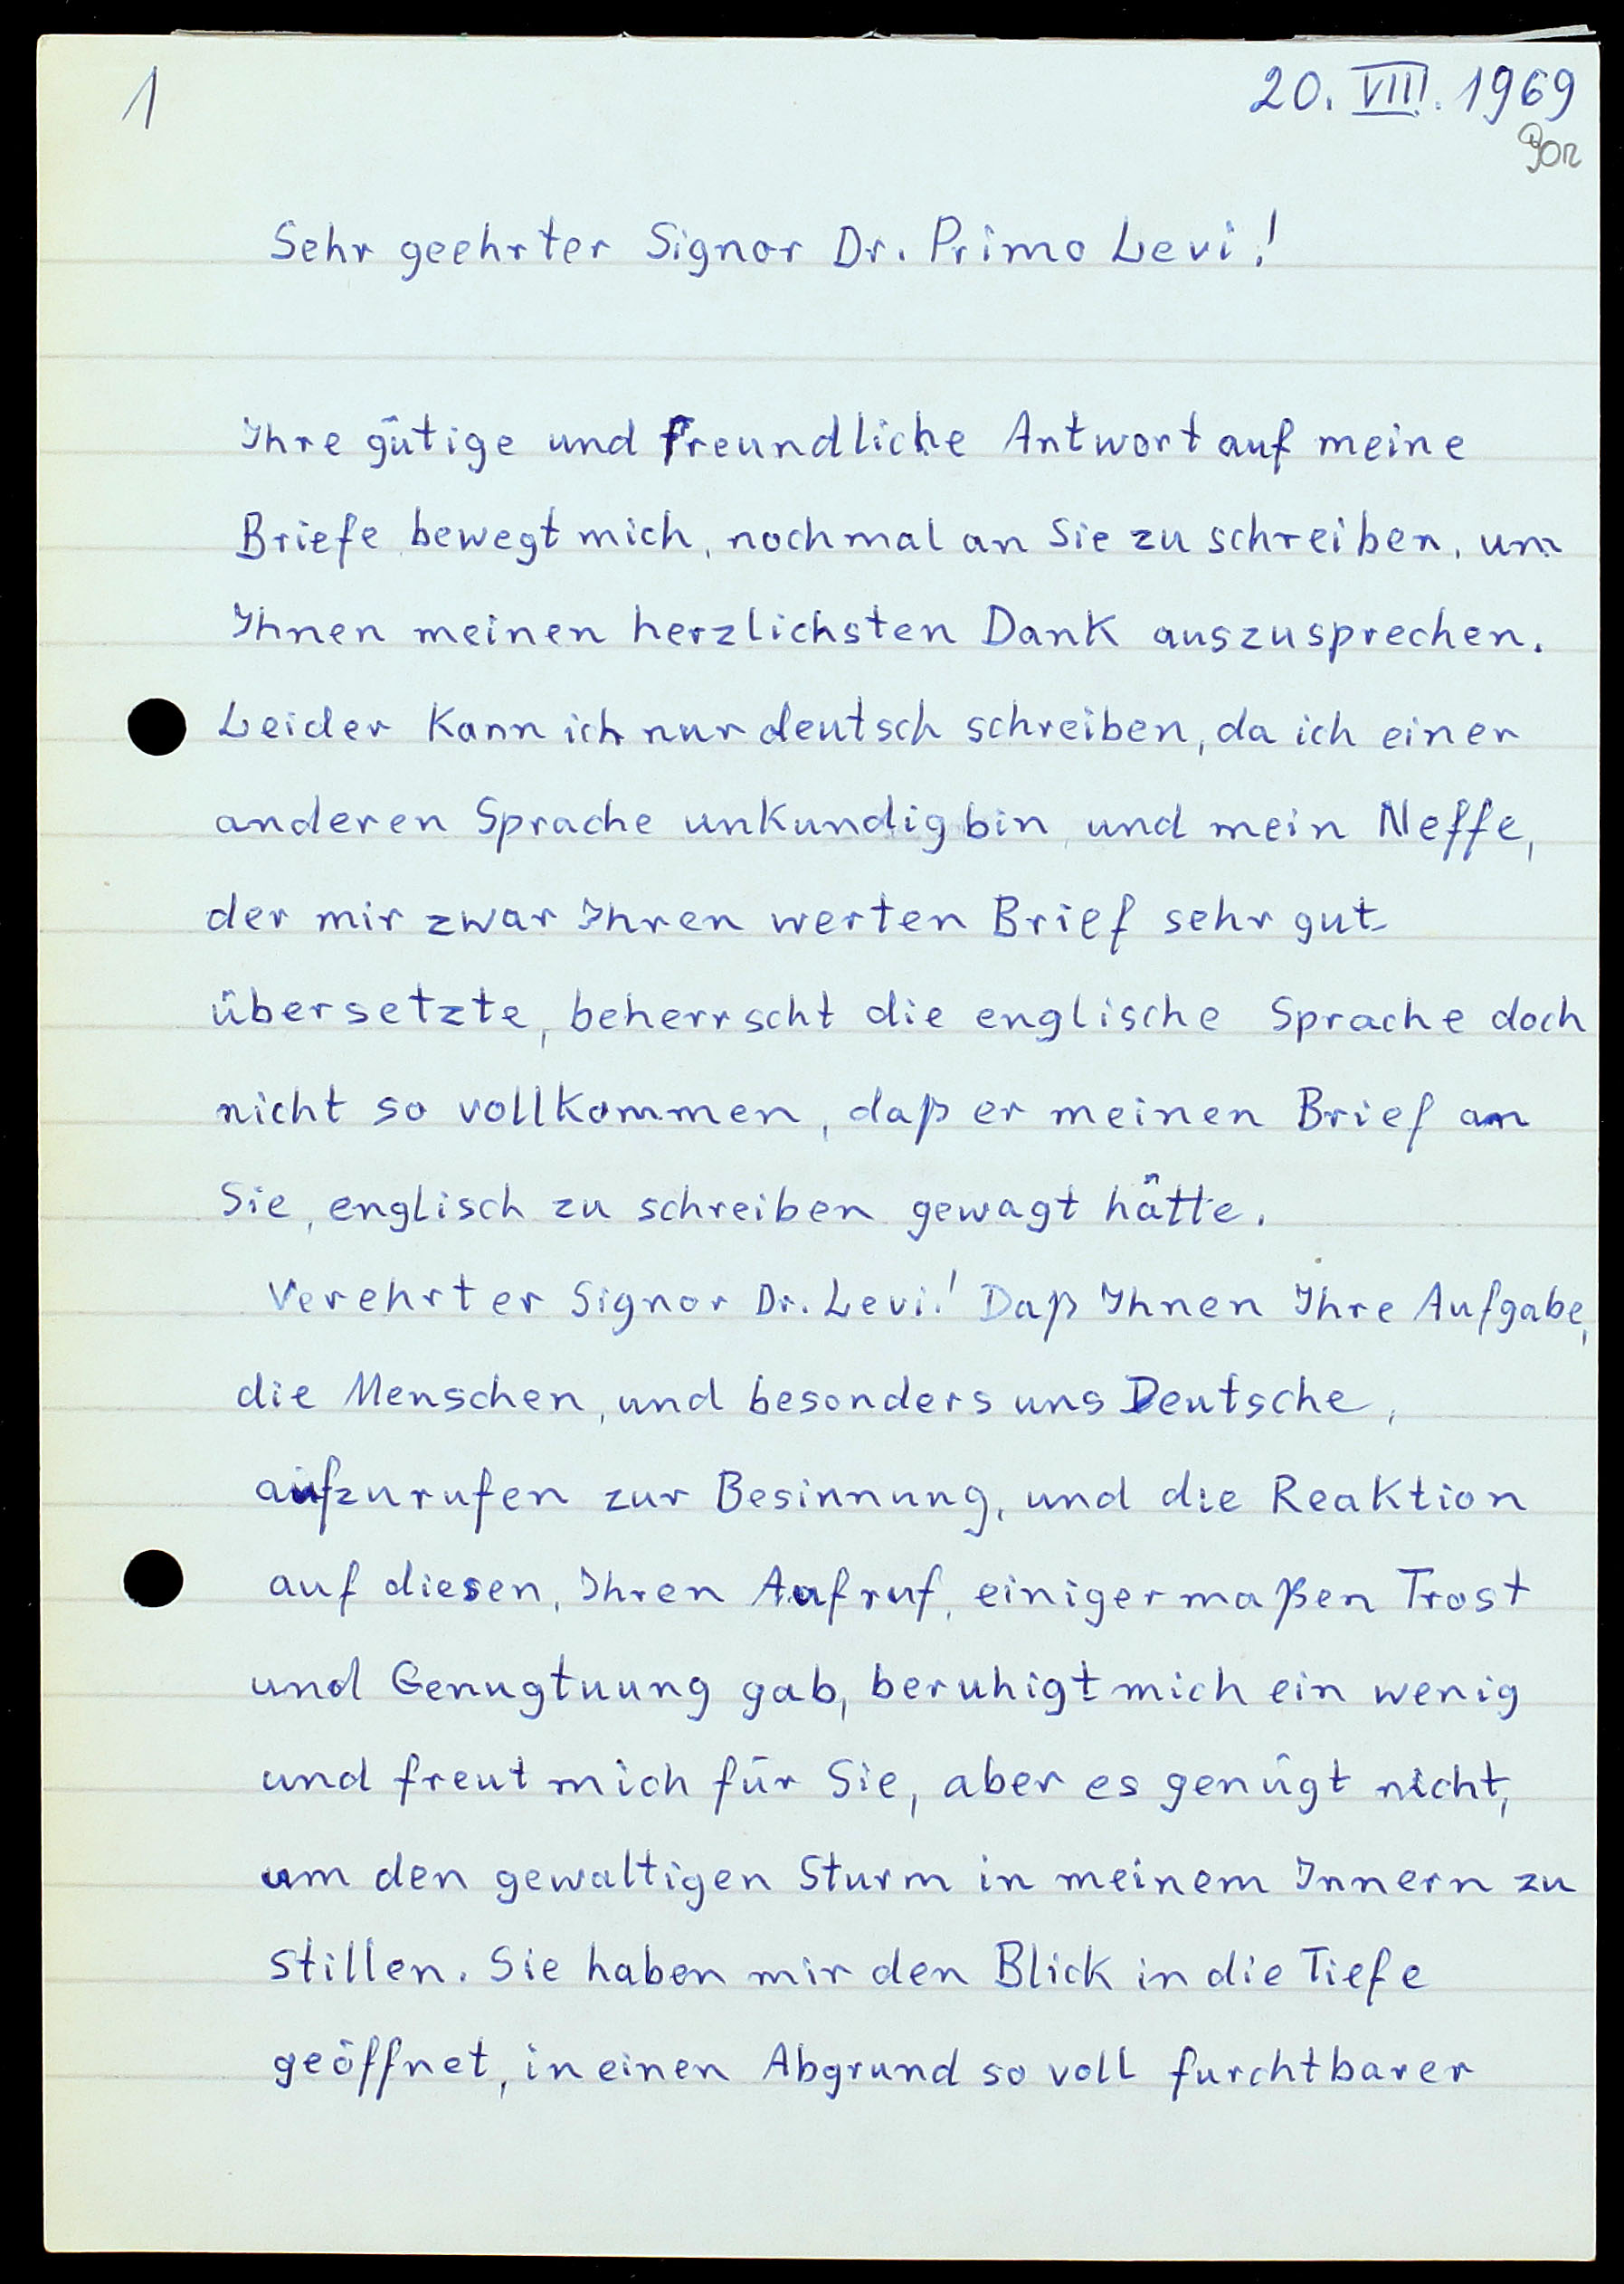 1
20. VIII. 1969
Sehr geehrter Signor Dr. Primo Levi!
Ihre gütige und freundliche Antwort auf meine
Briefe bewegt mich, nochmal an Sie zu schreiben, um
Ihnen meinen herzlichsten Dank auszusprechen.
Leider kann ich nur deutsch schreiben, da ich einer
anderen Sprache unkundig bin, und mein Neffe,
der mir zwar Ihren werten Brief sehr gut
übersetzte, beherrscht die englische Sprache doch
nicht so vollkommen, daß er meinen Brief an
Sie, englisch zu schreiben gewagt hätte.
Verehrter Signor Dr. Levi! Daß Ihnen Ihre Aufgabe,
die Menschen, und besonders uns Deutsche,
aufzurufen zur Besinnung, und die Reaktion
auf diesen, Ihren Aufruf, einigermaßen Trost
und Genugtuung gab, beruhigt mich ein wenig
und freut mich für Sie, aber es genügt nicht,
um den gewaltigen Sturm in meinem Innern zu
stillen. Sie haben mir den Blick in die Tiefe
geöffnet, in einen Abgrund so voll furchtbarer